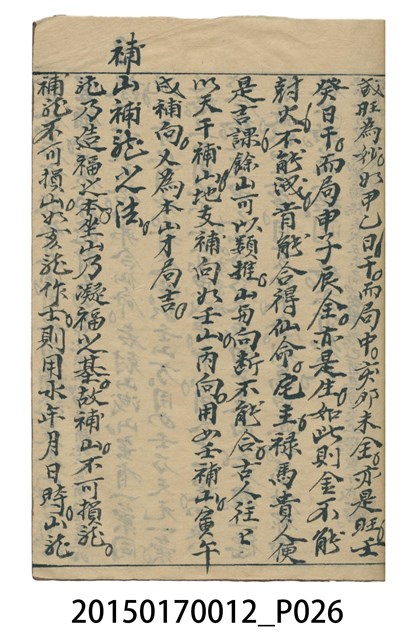 或旺為妙如甲乙日干而局中亥卯未全亦是旺壬
癸日干而局申子辰全亦是生如此則金不能
尅火不能滅肯能合得仙命尼主祿馬貴人便
是吉課餘山可以類推山與向斷不能合吉人往
以天干補山地支補向如壬山丙向用四壬補山寅午
戌補向又為本山才局吉
補山補龍之法
龍乃造福之本坐山乃凝福之基故補山不可損龍
補龍不可損山如亥龍作壬則用水年月日時山龍
20150170012_P026